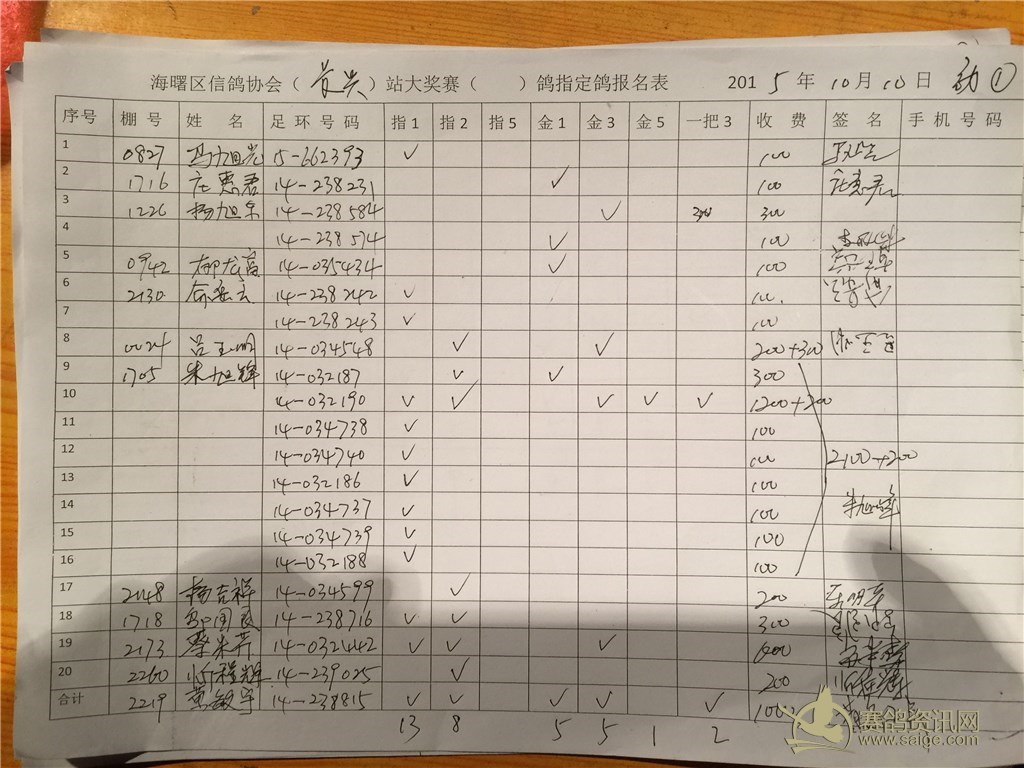 海曙区信鸽协会（ ）站大奖赛（ ）鸽指定鸽报名表 2015年10月10日 ①
序号 棚号 姓名 足环号码 指1 指2 指5 金1 金3 金5 一把3 收费 签名 手机号码
1 0827 冯旭光 15-662393 ✓ 100
2 1716 庄惠君 14-238231 ✓ 100 庄惠君
3 1226 杨旭东 14-238584 ✓ 300 300
4 14-238574 ✓ 100
5 0942 柳龙高 14-035434 ✓ 100
6 2130 14-238242 ✓ 100.
7 14-238243 ✓ 100
8 0024 吕玉明 14-034548 ✓ ✓ 200+300
9 1705 朱旭辉 14-032187 ✓ ✓ 300
10 14-032190 ✓ ✓ ✓ ✓ ✓ 1200+200
11 14-034738 ✓ 100
12 14-034740 ✓ 100 2100+200
13 14-032186 ✓ 100
14 14-034737 ✓ 100 朱旭辉
15 14-034739 ✓ 100
16 14-032188 ✓ 100
17 2148 杨吉祥 14-034599 ✓ 200
18 1718 14-238716 ✓ ✓ 300
19 2173 14-032442 ✓ ✓ ✓ 600
20 2260 14-239025 ✓ 200
合计 2219 葛敏宇 14-238815 ✓ ✓ ✓ ✓ ✓ 1000
13 8 5 5 1 2
赛鸽资讯网
www.saige.com